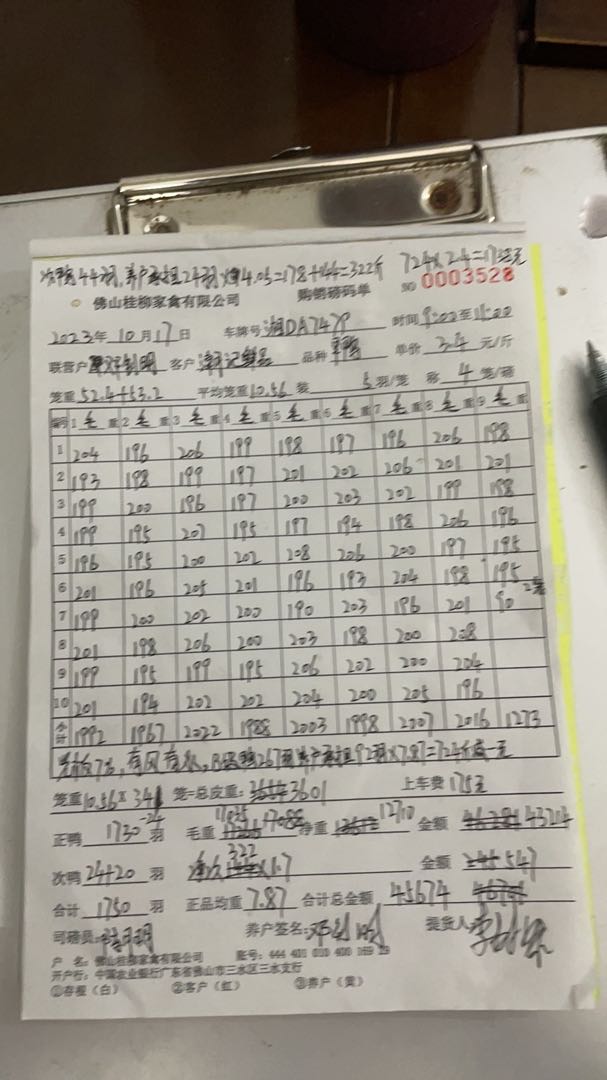 次鸭44羽,养户承担24羽×4.05=178+144=322斤
724×2.4=1738元
佛山桂柳家禽有限公司 购销磅码单 NO 0003528
2023年10月17日 车牌号湘DA747 时间9:00至11:00
联营户 客户 品种 单价3.4元/斤
笼重52.4+53.2 平均笼重10.56 装5羽/笼 称4笼/磅
编号 1毛重 2毛重 3毛重 4毛重 5毛重 6毛重 7毛重 8毛重 9毛重
1 204 196 206 199 198 197 196 206 198
2 193 198 199 197 201 202 206 201 201
3 199 200 196 197 200 203 202 199 198
4 199 195 207 195 197 194 198 206 196
5 196 195 200 202 208 206 200 197 195
6 201 196 205 201 196 193 204 198 195
7 199 200 202 200 190 203 196 201 90 2笼
8 201 198 206 200 203 198 200 208
9 199 195 199 195 206 202 200 204
10 201 194 202 202 204 200 205 196
合计 1992 1967 2022 1988 2003 1998 2007 2016 1273
7%,有风有水,B品鸭267羽养户承担92羽×7.87=724斤 一元
笼重10.56×341 笼=总皮重:3601 上车费175元
正鸭1730-24羽 毛重17088 净重12710 金额43214
次鸭24+20羽 322×1.7 金额547
合计1750羽 正品均重7.87 合计总金额45674
司磅员: 养户签名:邓 提货人:
户 名:佛山桂柳家禽有限公司 账号:
开户行:中国农业银行广东省佛山市三水区三水支行
①存根(白) ②客户(红) ③养户(黄)